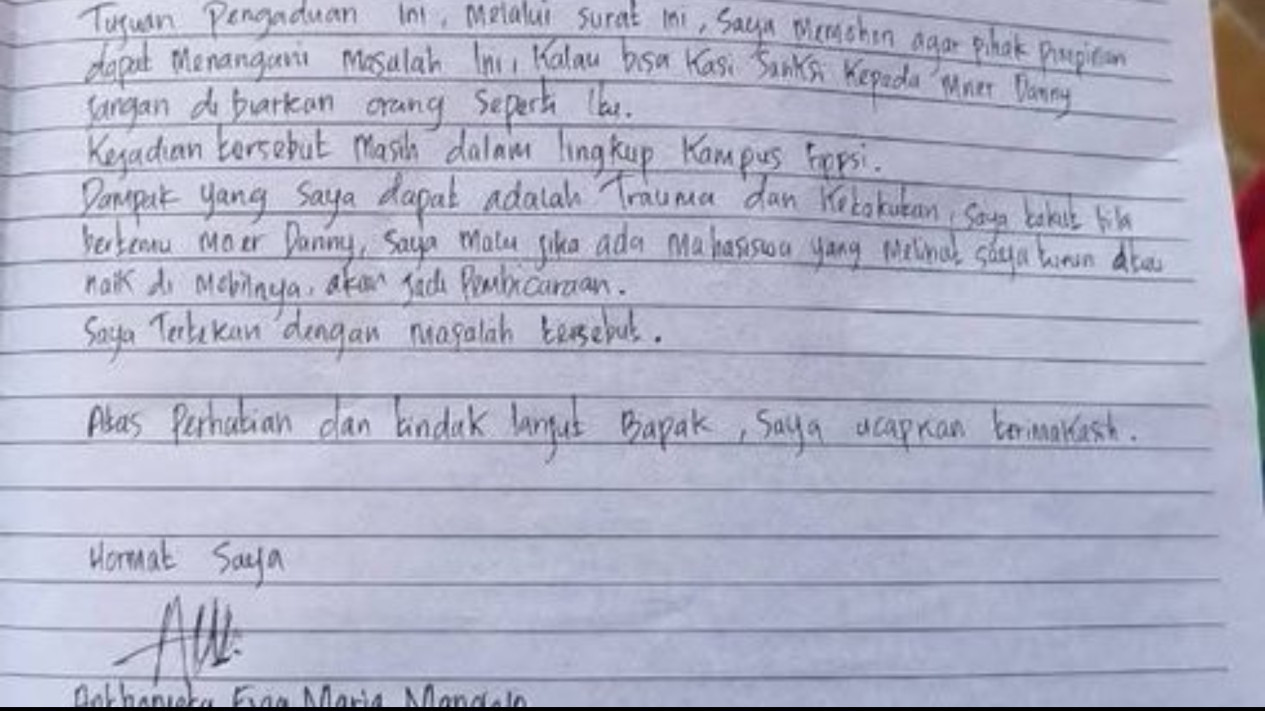 Tujuan Pengaduan Ini, Melalui surat ini, Saya Memohon agar pihak Pimpinan
dapat Menangani Masalah Ini, Kalau bisa Kasi Sanksi Kepada Mner Danny
Jangan di biarkan orang Seperti Itu.
Kejadian tersebut Masih dalam lingkup Kampus Fippsi.
Dampak yang Saya dapat adalah Trauma dan Ketakutan, Saya takut bila
bertemu Mner Danny, Saya Malu jika ada Mahasiswa yang Melihat saya turun atau
naik di Mobilnya, akan jadi Pembicaraan.
Saya Tertekan dengan masalah tersebut.
Atas Perhatian dan tindak lanjut Bapak, Saya ucapkan terimakasih.
Hormat Saya
Maria